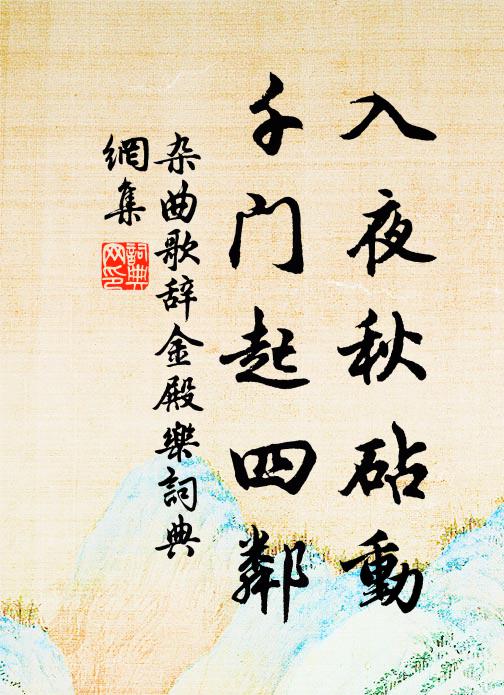 入夜秋砧動
千门起四鄰
杂曲歌辞金殿樂詞典
網集
詞典
网印